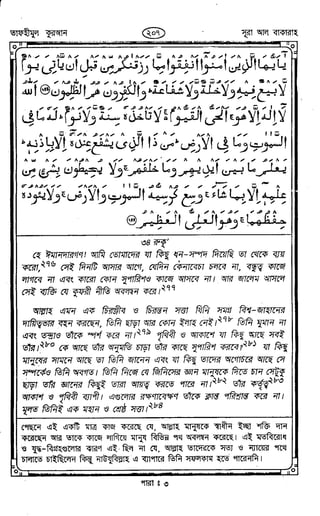 তাফহীমুল কুরআন
২০৭
সূরা আল বাকারাহ
يَأَيُّهَا الَّذِينَ آمَنُوا أَنْفِقُوا مِمَّا رَزَقْنَكُمْ مِّنْ قَبْلِ أَنْ يَأْتِيَ يَوْمٌ
لَّا بَيْعٌ فِيهِ وَلَا خُلَّةٌ وَّلَا شَفَاعَةٌ وَالْكٰفِرُونَ هُمُ الظّٰلِمُونَ ﴿٢٥٤﴾ اللهُ
لَا إِلٰهَ إِلَّا هُوَ الْحَيُّ الْقَيُّومُ ۚ لَا تَأْخُذُهُ سِنَةٌ وَّلَا نَوْمٌ لَهُ مَا فِي
السَّمٰوٰتِ وَمَا فِي الْأَرْضِ مَنْ ذَا الَّذِي يَشْفَعُ عِنْدَهُ إِلَّا بِإِذْنِهِ
يَعْلَمُ مَا بَيْنَ أَيْدِيهِمْ وَمَا خَلْفَهُمْ وَلَا يُحِيطُونَ بِشَيْءٍ مِّنْ
عِلْمِهِ إِلَّا بِمَا شَاءَ وَسِعَ كُرْسِيُّهُ السَّمٰوٰتِ وَالْأَرْضَ وَلَا يَئُودُهُ
حِفْظُهُمَا وَهُوَ الْعَلِيُّ الْعَظِيمُ ﴿٢٥٥﴾
৩৪ রুকূ'
হে ঈমানদারগণ! আমি তোমাদের যা কিছু ধন-সম্পদ দিয়েছি তা থেকে ব্যয়
করো,২৭৬ সেই দিনটি আসার আগে, যেদিন কেনাবেচা চলবে না, বন্ধুত্ব কাজে
লাগবে না এবং কারো কোন সুপারিশও কাজে আসবে না। আর জালেম আসলে
সেই ব্যক্তি যে কুফরী নীতি অবলম্বন করে।২৭৭
আল্লাহ এমন এক চিরঞ্জীব ও চিরন্তন সত্তা যিনি সমগ্র বিশ্ব-জাহানের
দায়িত্বভার বহন করছেন, তিনি ছাড়া আর কোন ইলাহ নেই।২৭৮ তিনি ঘুমান না
এবং তন্দ্রাও তাঁকে স্পর্শ করে না।২৭৯ পৃথিবী ও আকাশে যা কিছু আছে সবই
তাঁর।২৮০ কে আছে তাঁর অনুমতি ছাড়া তাঁর কাছে সুপারিশ করবে?২৮১ যা কিছু
মানুষের সামনে আছে তা তিনি জানেন এবং যা কিছু তাদের অগোচরে আছে সে
সম্পর্কেও তিনি অবগত। তিনি নিজে যে জিনিসের জ্ঞান মানুষকে দিতে চান সেটুকু
ছাড়া তাঁর জ্ঞানের কিছুই তারা আয়ত্ব করতে পারে না।২৮২ তাঁর কর্তৃত্ব২৮৩
আকাশ ও পৃথিবী ব্যাপী। এগুলোর রক্ষণাবেক্ষণ তাঁকে ক্লান্ত পরিশ্রান্ত করে না।
মূলত তিনিই এক মহান ও শ্রেষ্ঠ সত্তা।২৮৪
পেছনে এই একটি মাত্র কাজ করছে যে, আল্লাহ মানুষকে স্বাধীন ইচ্ছা শক্তি দান
করেছেন আর তাকে কাজে লাগিয়ে মানুষ বিভিন্ন পথ অবলম্বন করেছে। এই মতবিরোধ
ও যুদ্ধ-বিগ্রহগুলোর কারণ এই ছিল না যে, আল্লাহ তাদেরকে সত্য ও ন্যায়ের পথে
চালাতে চাইছিলেন কিন্তু নাউযুবিল্লাহ এ ব্যাপারে তিনি সফলকাম হতে পারেননি।
পারা ঃ ৩